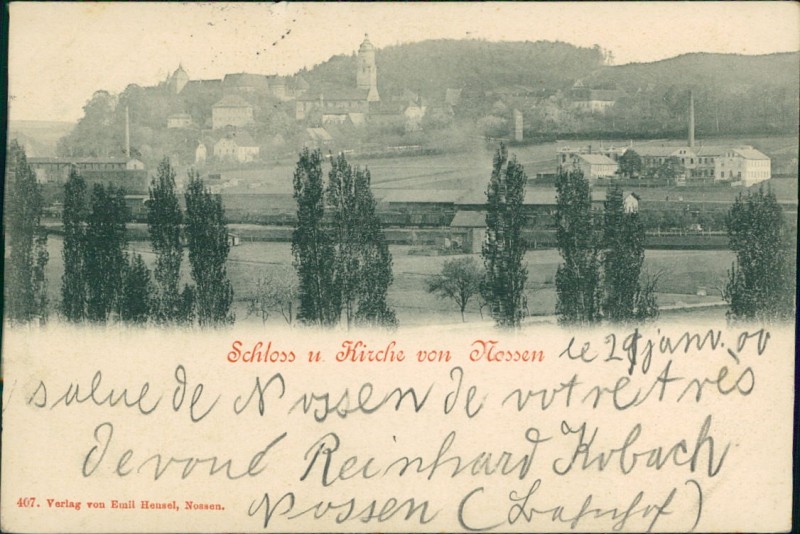 Schloss u. Kirche von Nossen
le 29 janv. 00
salue de Nossen de votre très
devoué Reinhard Kobach
Nossen (Bahnhof)
407. Verlag von Emil Hensel, Nossen.